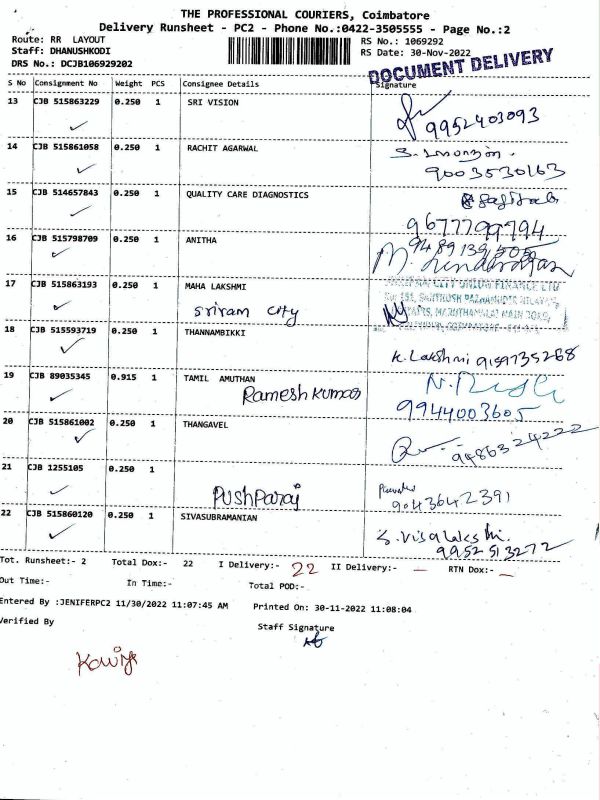 THE PROFESSIONAL COURIERS, Coimbatore
Delivery Runsheet - PC2 - Phone No.:0422-3505555 - Page No.:2
Route: RR LAYOUT
RS No.: 1069292
Staff: DHANUSHKODI
RS Date: 30-Nov-2022
DRS No.: DCJB106929202
DOCUMENT DELIVERY
S No Consignment No Weight PCS Consignee Details Signature
13 CJB 515863229 0.250 1 SRI VISION
9952403093
14 CJB 515861058 0.250 1 RACHIT AGARWAL
9003530163
15 CJB 514657843 0.250 1 QUALITY CARE DIAGNOSTICS
9677799794
16 CJB 515798709 0.250 1 ANITHA
9489139505
17 CJB 515863193 0.250 1 MAHA LAKSHMI
Sriram City
18 CJB 515593719 0.250 1 THANNAMBIKKI
K. Lakshmi 9159735268
19 CJB 89035345 0.915 1 TAMIL AMUTHAN
Ramesh Kumar
9944003605
20 CJB 515861002 0.250 1 THANGAVEL
9486324222
21 CJB 1255105 0.250 1
Pushparaj
9043642391
22 CJB 515860120 0.250 1 SIVASUBRAMANIAN
S. Visalakshi.
9952513272
Tot. Runsheet:- 2 Total Dox:- 22 I Delivery:- 22 II Delivery:- — RTN Dox:- —
Out Time:- In Time:- Total POD:-
Entered By :JENIFERPC2 11/30/2022 11:07:45 AM Printed On: 30-11-2022 11:08:04
Verified By Staff Signature